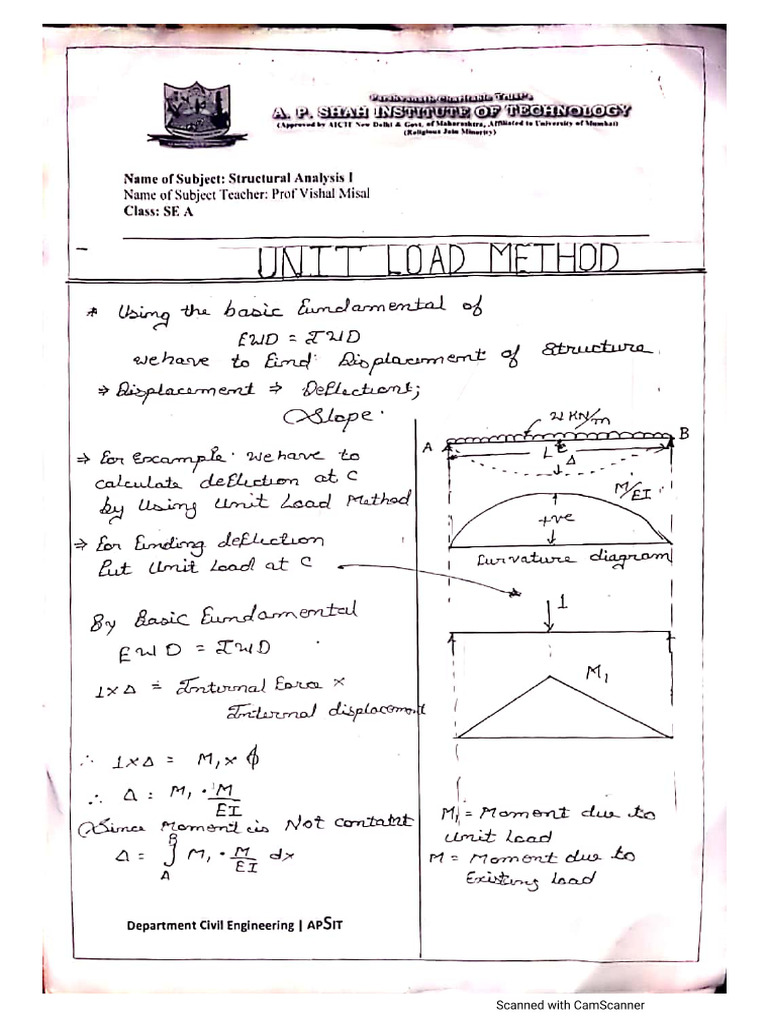 Parshvanath Charitable Trust's
A. P. SHAH INSTITUTE OF TECHNOLOGY
(Approved by AICTE New Delhi & Govt. of Maharashtra, Affiliated to University of Mumbai)
(Religious Jain Minority)
Name of Subject: Structural Analysis I
Name of Subject Teacher: Prof Vishal Misal
Class: SE A
UNIT LOAD METHOD
* Using the basic Fundamental of
EWD = IWD
we have to Find Displacement of Structure
⇒ Displacement ⇒ Deflections;
Slope.
⇒ For example we have to
calculate deflection at C
by Using Unit Load Method
⇒ For Finding deflection
Put Unit Load at C
By Basic Fundamental
EWD = IWD
1×Δ = Internal Force ×
Internal displacement
∴ 1×Δ = M₁ × ϕ
∴ Δ = M₁ · M/EI
Since Moment is Not contatnt
Δ = ∫ₐᴮ M₁ · M/EI dx
KN/m
A B
L C
Δ
M/EI
+ve
Curvature diagram
1
M₁
M₁ = Moment due to
Unit Load
M = Moment due to
Existing Load
Department Civil Engineering | APSIT
Scanned with CamScanner